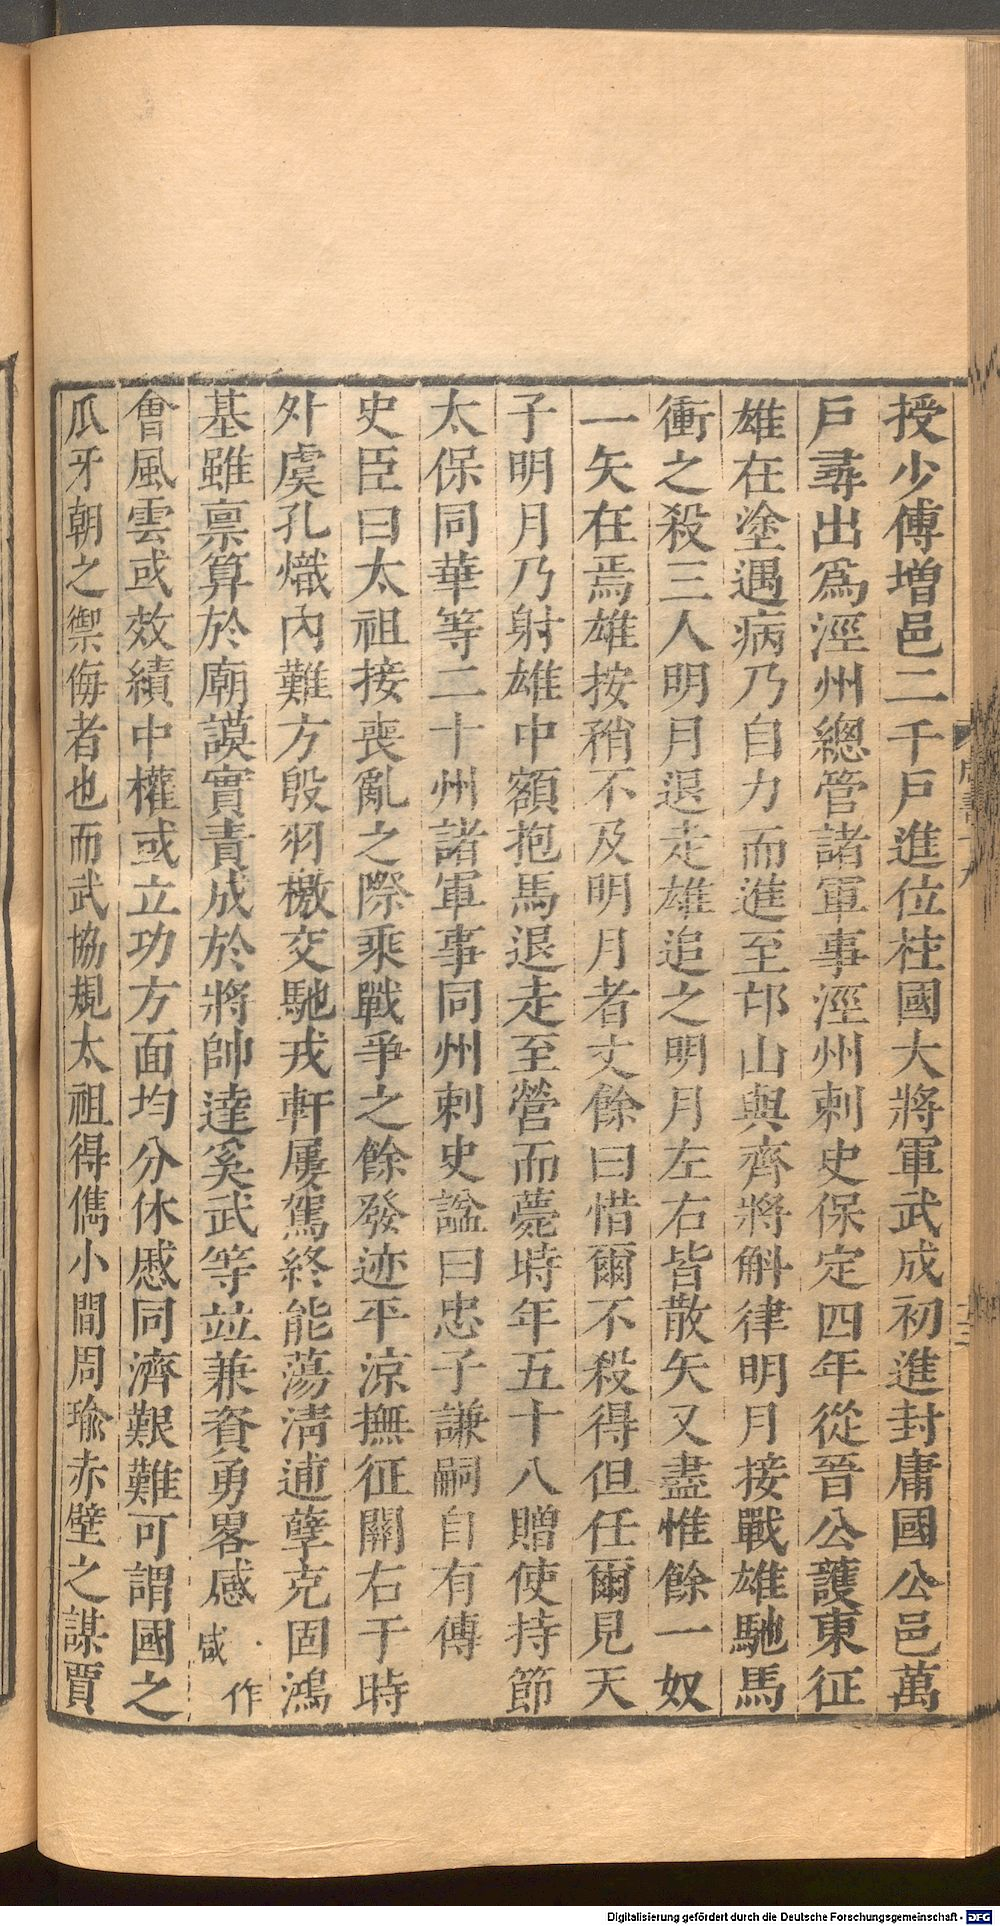 授少傅增邑二千戶進位柱國大將軍武成初進封庸國公邑萬
戶尋出爲涇州總管諸軍事涇州刺史保定四年從晉公護東征
雄在塗遇病乃自力而進至邙山與齊將斛律明月接戰雄馳馬
衝之殺三人明月退走雄追之明月左右皆散矢又盡惟餘一奴
一矢在焉雄按矟不及明月者丈餘曰惜爾不殺得但任爾見天
子明月乃射雄中額抱馬退走至營而薨時年五十八贈使持節
太保同華等二十州諸軍事同州刺史諡曰忠子謙嗣自有傳
史臣曰太祖接喪亂之際乘戰爭之餘發迹平涼撫征關右于時
外虞孔熾內難方殷羽檄交馳戎軒屢駕終能蕩清逋孽克固鴻
基雖禀算於廟謨實責成於將帥達奚武等竝兼資勇畧感作咸
會風雲或效績中權或立功方面均分休慼同濟艱難可謂國之
爪牙朝之禦侮者也而武協規太祖得儁小關周瑜赤壁之謀賈
Digitalisierung gefördert durch die Deutsche Forschungsgemeinschaft - DFG